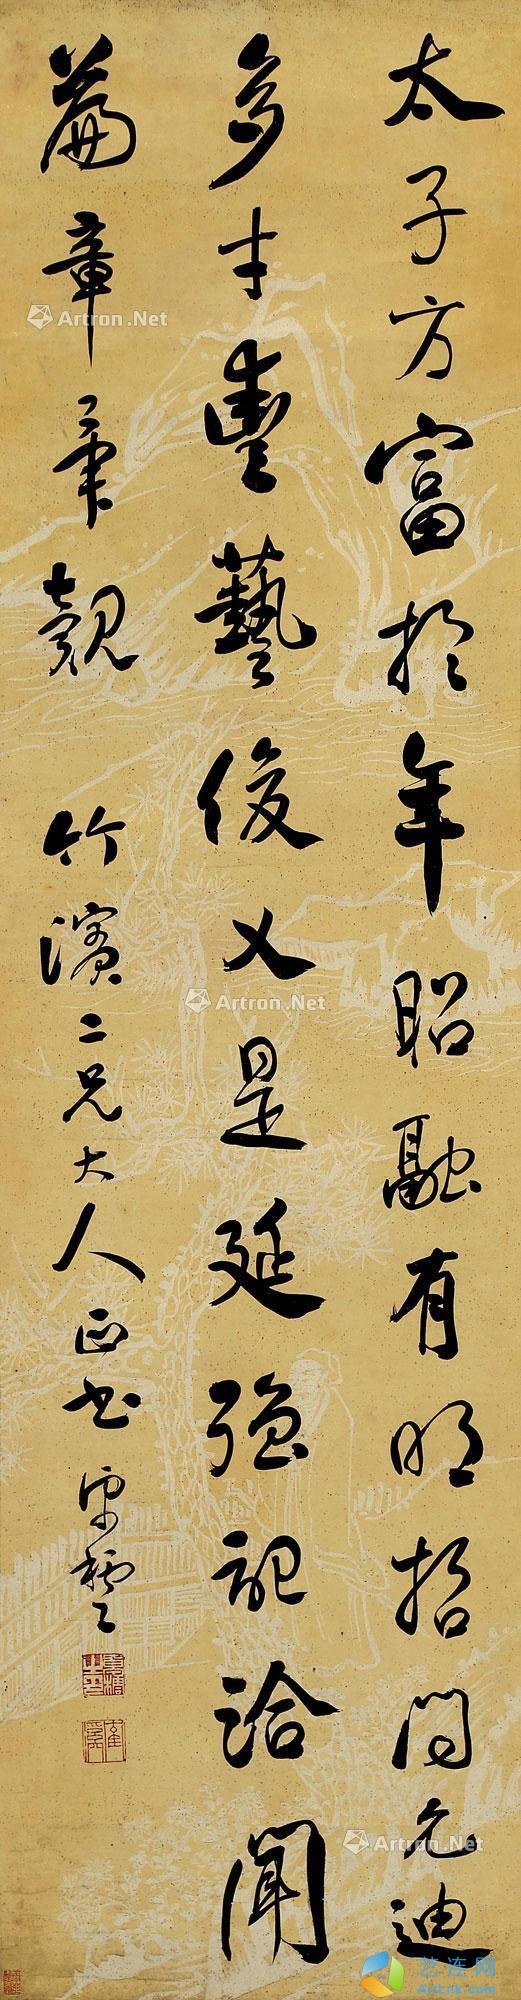 太子方富於年昭融有明哲問允迪
多才豐藝俊乂是延強記洽聞
篇章觀
竹濱二兄大人正書
Artron.Net
Artron.Net
Artron.Net
Artron.Net
艺连网